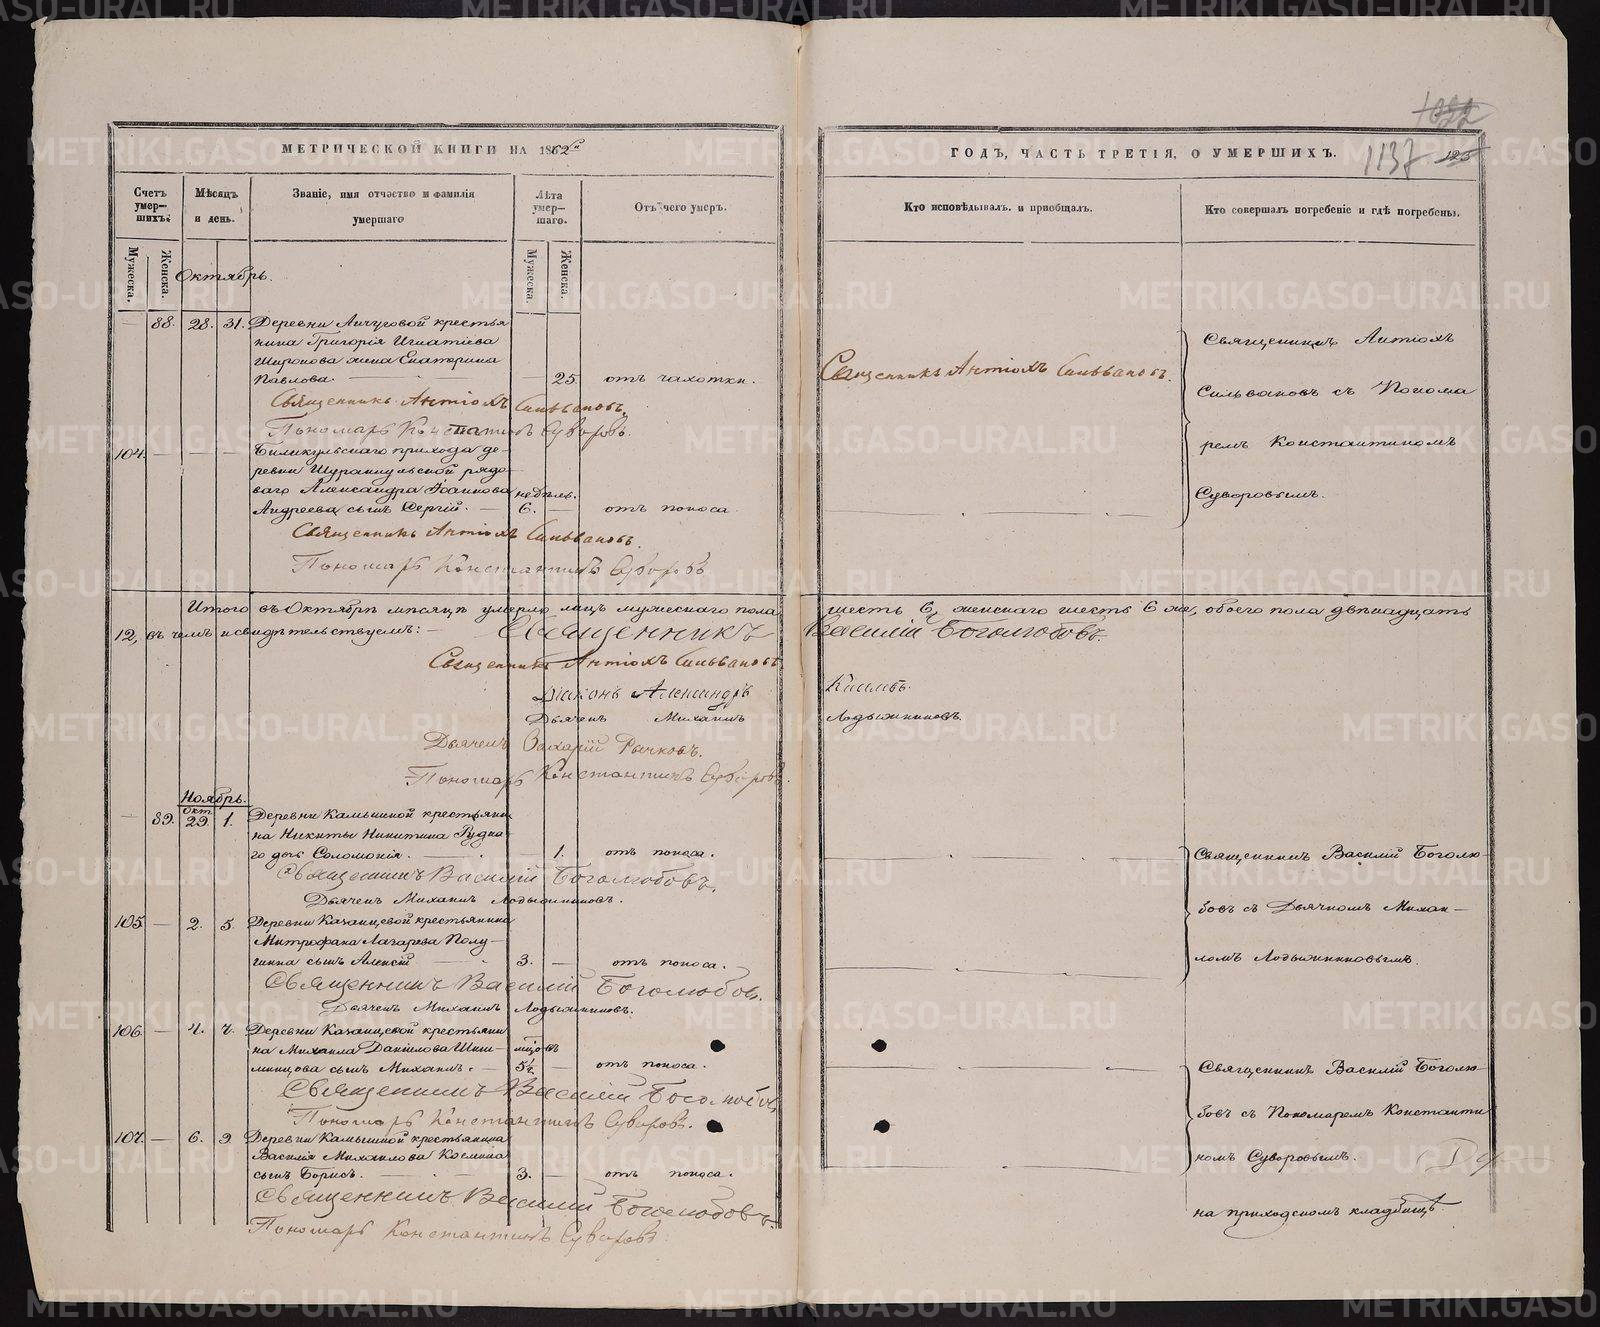 МЕТРИЧЕСКОЙ КНИГИ НА 1862й
ГОДЪ, ЧАСТЬ ТРЕТІЯ, О УМЕРШИХЪ.
1137
Счетъ умер—шихъ.
Мѣсяцъ и день.
Званіе, имя отчество и фамилія умершаго
Лѣта умер—шаго.
Отъ чего умеръ.
Кто исповѣдывалъ. и пріобщалъ.
Кто совершалъ погребеніе и гдѣ погребены.
Мужеска.
Женска.
Мужеска.
Женска.
Октябрь.
88. 28. 31. Деревни Ачуговой крестья
нина Григорія Игнатіева
Широнова жена Екатерина
Павлова. 25. отъ чахотки.
Священникъ Антіохъ Сильвановъ.
Священникъ Антіохъ Сильвановъ.
Пономарь Константинъ Суворовъ.
Священникъ Антіохъ
Сильвановъ съ Понома
ремъ Константиномъ
Суворовымъ.
104. Биликульскаго прихода де-
ревни Шуранкульской рядо
ваго Александра Іоаннова недѣль.
Андреева сынъ Сергій. 6. отъ поноса.
Священникъ Антіохъ Сильвановъ.
Пономарь Константинъ Суворовъ
Итого въ Октябрѣ мѣсяцѣ умерло лицъ мужескаго пола шесть 6, женскаго шесть 6 же, обоего пола двѣнадцать
12, въ чемъ и свидѣтельствуемъ: — Священникъ Василій Боголюбовъ.
Священникъ Антіохъ Сильвановъ.
Діаконъ Александръ
Дьячекъ Михаилъ Лодыжниковъ.
Дьячекъ Захарій Рычковъ.
Пономарь Константинъ Суворовъ.
Ноябрь.
Окт.
89. 29. 1. Деревни Камышной крестьяни
на Никиты Никитина Рудна
го дочь Соломонія. 1. отъ поноса.
Священникъ Василій Боголюбовъ.
Дьячекъ Михаилъ Лодыжниковъ.
Священникъ Василій Боголю-
бовъ съ Дьячкомъ Михаи—
ломъ Лодыжниковымъ.
105. 2. 5. Деревни Казанцевой крестьянина
Митрофана Лазарева Полу—
гина сынъ Алексій 3. отъ поноса.
Священникъ Василій Боголюбовъ.
Дьячекъ Михаилъ Лодыжниковъ.
106. 4. 7. Деревни Казанцевой крестьяни
на Михаила Даніилова Шиш— мцовъ
минцова сынъ Михаилъ. 5½. отъ поноса.
Священникъ Василій Боголюбовъ.
Пономарь Константинъ Суворовъ.
Священникъ Василій Боголю-
бовъ съ Пономаремъ Константи
номъ Суворовымъ.
107. 6. 9. Деревни Камышной крестьянина
Василія Михаилова Космина
сынъ Борисъ. 3. отъ поноса.
Священникъ Василій Боголюбовъ.
Пономарь Константинъ Суворовъ.
на приходскомъ кладбищѣ
METRIKI.GASO-URAL.RU